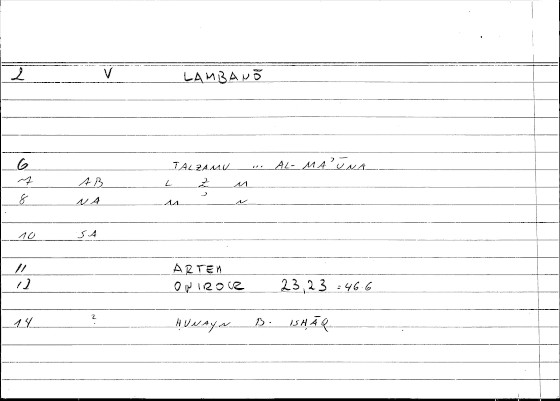 2 V LAMBANŌ
6 TALZAMU ... AL-MAʾŪNA
7 AB L Z M
8 NA M ʾ N
10 SA
11 ARTEM
12 ONIROCR 23,23 = 46.6
14 ? ḤUNAYN B. ISḤĀQ